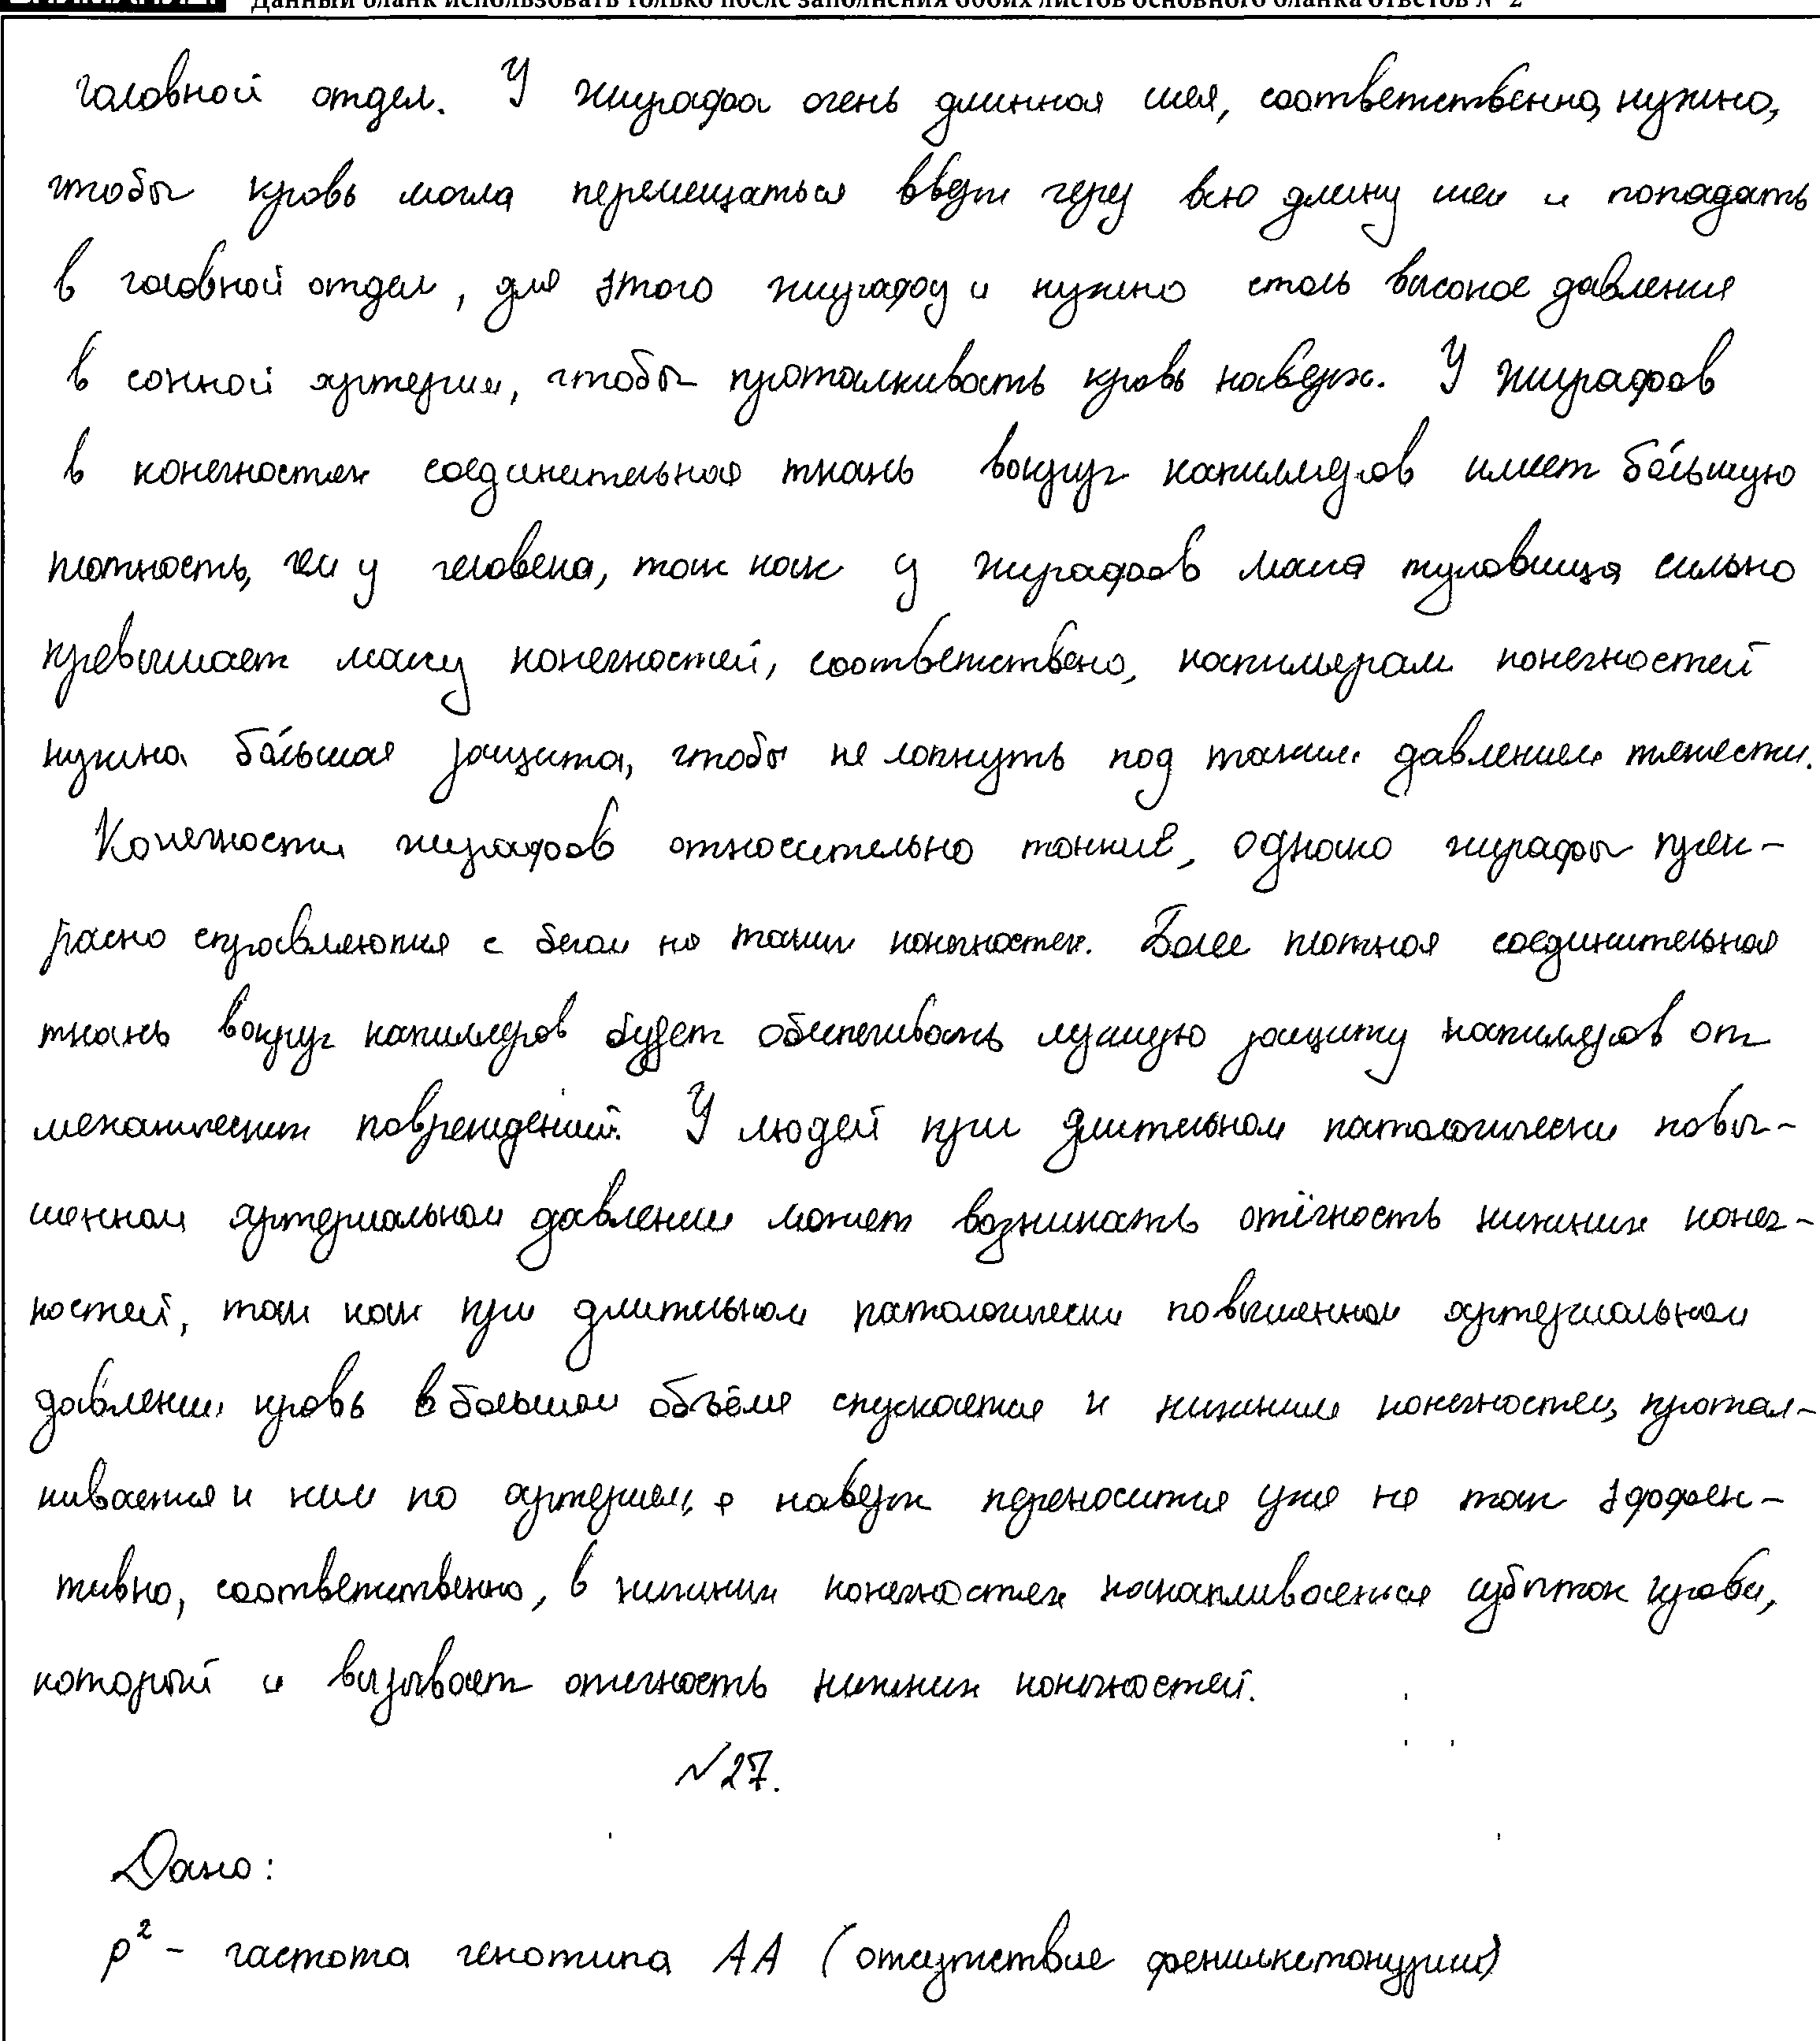 Данный бланк использовать только после заполнения обоих листов основного бланка ответов № 2
головной отдел. У жирафа очень длинная шея, соответственно, нужно,
чтобы кровь могла перемещаться вверх через всю длину шеи и попадать
в головной отдел, для этого жирафу и нужно столь высокое давление
в сонной артерии, чтобы проталкивать кровь наверх. У жирафов
в конечностях соединительная ткань вокруг капилляров имеет бо́льшую
плотность, чем у человека, так как у жирафов масса туловища сильно
превышает массу конечностей, соответствено, капиллярам конечностей
нужна бо́льшая защита, чтобы не лопнуть под таким давлением тяжести.
Конечности жирафов относительно тонкие, однако жирафы прек-
расно справляются с бегом на таких конечностях. Более плотная соединительная
ткань вокруг капилляров будет обеспечивать лучшую защиту капилляров от
механических повреждений. У людей при длительном патологически повы-
шенном артериальном давлении может возникать отёчность нижних конеч-
ностей, так как при длительном патологически повышенном артериальном
давлении кровь в большом объёме спускается к нижним конечностям, проталк-
кивается к ним по артериям, а наверх переносится уже не так эффек-
тивно, соответственно, в нижних конечностях накапливается избыток крови,
который и вызывает отечность нижних конечностей.
№27.
Дано:
p² - частота генотипа AA (отсутствие фенилкетонурии)